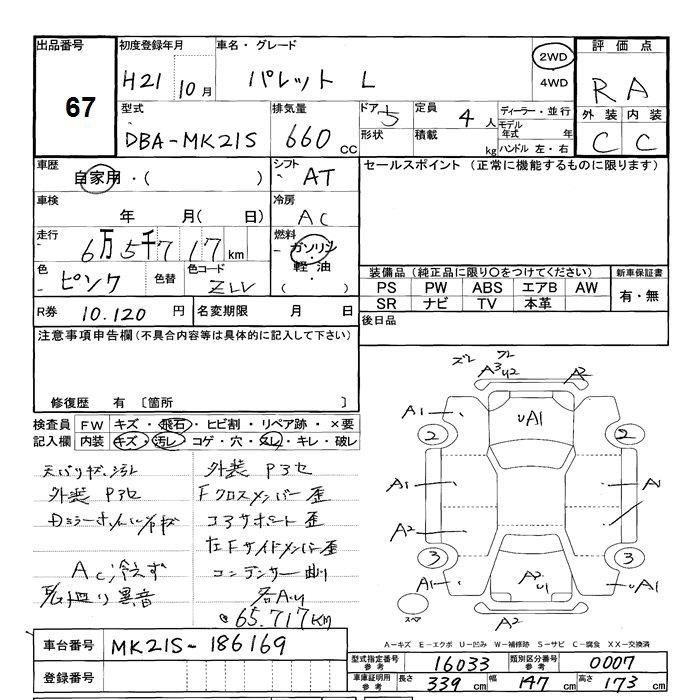 出品番号 初度登録年月 車名・グレード 評価点
67 H21 10月 パレット L 2WD 4WD R A
型式 排気量 ドア 5 定員 4人 ディーラー・並行 外装 内装
DBA-MK21S 660 cc 形状 積載 kg モデル年式 年 ハンドル 左・右 C C
車歴 自家用・( ) シフト AT セールスポイント (正常に機能するものに限ります)
車検 年 月( 日) 冷房 AC
走行 6万5千717 km 燃料 ガソリン 軽油 ( )
色 ピンク 色替 色コード ZLV
装備品 (純正品に限り○をつけてください) 新車保証書
PS PW ABS エアB AW 有・無
SR ナビ TV 本革
R券 10.120 円 名変期限 月 日 後日品
注意事項申告欄(不具合内容等は具体的に記入して下さい)
修復歴 有 〔箇所 〕
検査員記入欄 FW キズ・飛石・ヒビ割・リペア跡・×要
内装 キズ・汚レ・コゲ・穴・スレ・キレ・破レ
外装 P3セ
外装 P3セ Fクロスメンバー歪
コアサポート歪
左Fサイドメンバー歪
AC冷えず コンデンサー曲り
異音
65.717KM
A3 U2 A2
A1 UA1
2 2
A1 A1
A2
3 3
A1 A2 U1 UA1
スペア A2
A-キズ E-エクボ U-凹み W-補修跡 S-サビ C-腐食 XX-交換済
車台番号 MK21S-186169
登録番号
型式指定番号参考 16033 類別区分番号参考 0007
車庫証明用参考 長さ 339 cm 幅 147 cm 高さ 173 cm